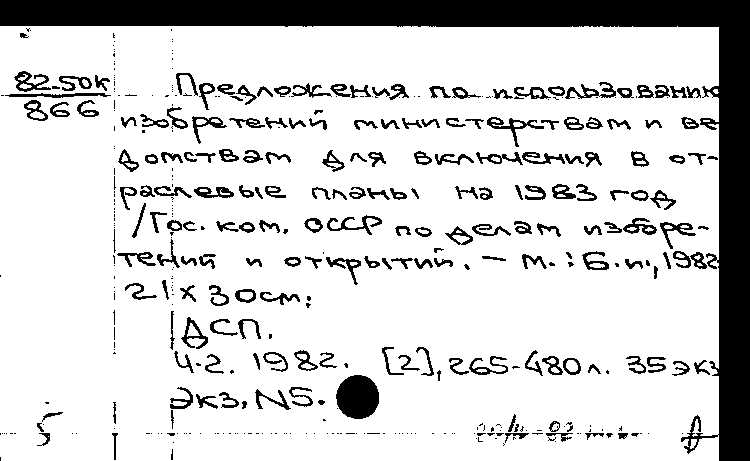 82-50к
866
Предложения по использованию
изобретений министерствам и ве
домствам для включения в от-
раслевые планы на 1983 год
/Гос. ком. СССР по делам изобре-
тений и открытий. — М. : Б. и., 1982
21 х 30 см.
ДСП.
Ч.2. 1982. [2], 265-480 л. 35 экз
Экз. N5.
5